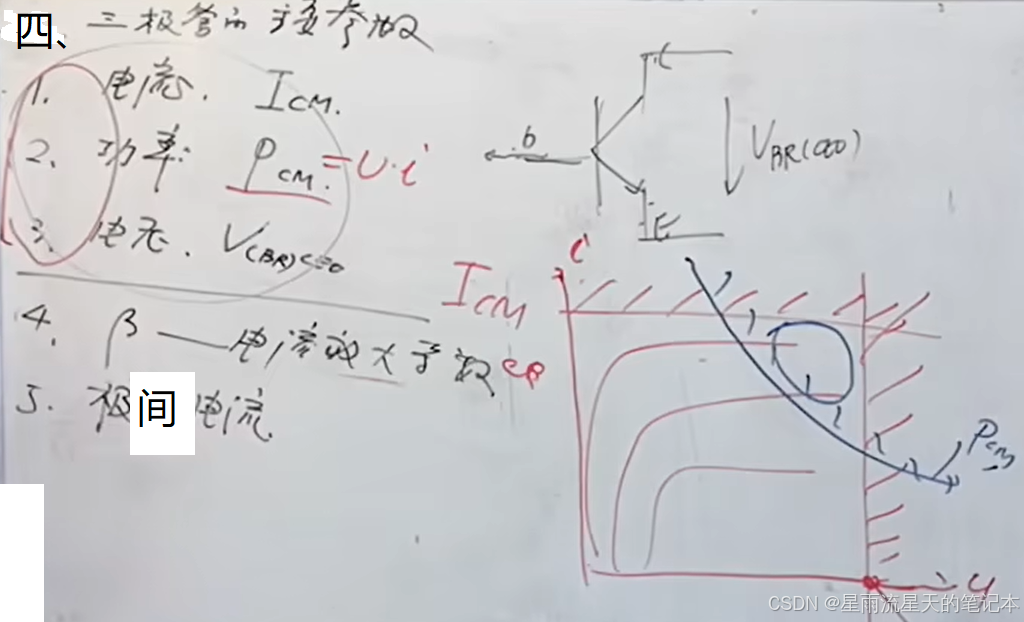 四、三极管的主要参数
1. 电流. ICM.
2. 功率: PCM. = U·i
3. 电压. V(BR)CEO
4. β —— 电流放大系数
5. 极间电流.
b
C
E
VBR(CEO)
i
ICM
PCM
u
CSDN @星雨流星天的笔记本